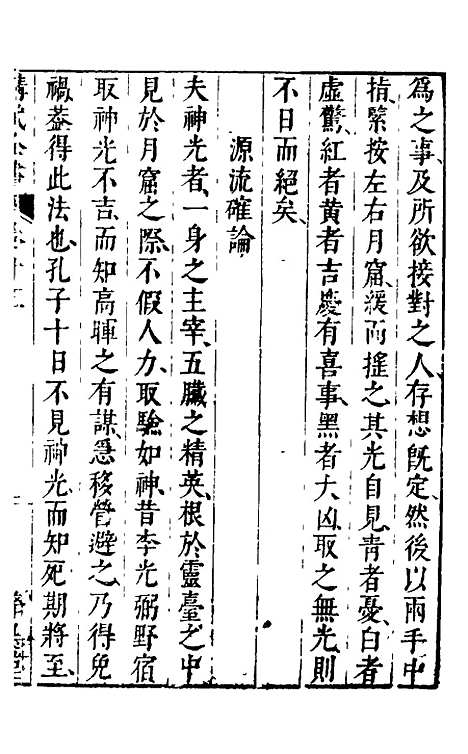 爲之事、及所欲接對之人、存想旣定、然後以兩手中
指、緊按左右月窟、緩而搖之、其光自見、青者憂、白者
虛驚、紅者黄者吉慶有喜事、黑者大凶、取之無光、則
不日而絕矣、
源流確論
夫神光者、一身之主宰、五臟之精英、根於靈臺之中
見於月窟之際、不假人力、取驗如神、昔李光弼野宿
取神光不吉、而知高暉之有謀、急移營避之、乃得免
禍、葢得此法也、孔子十日不見神光、而知死期將至、